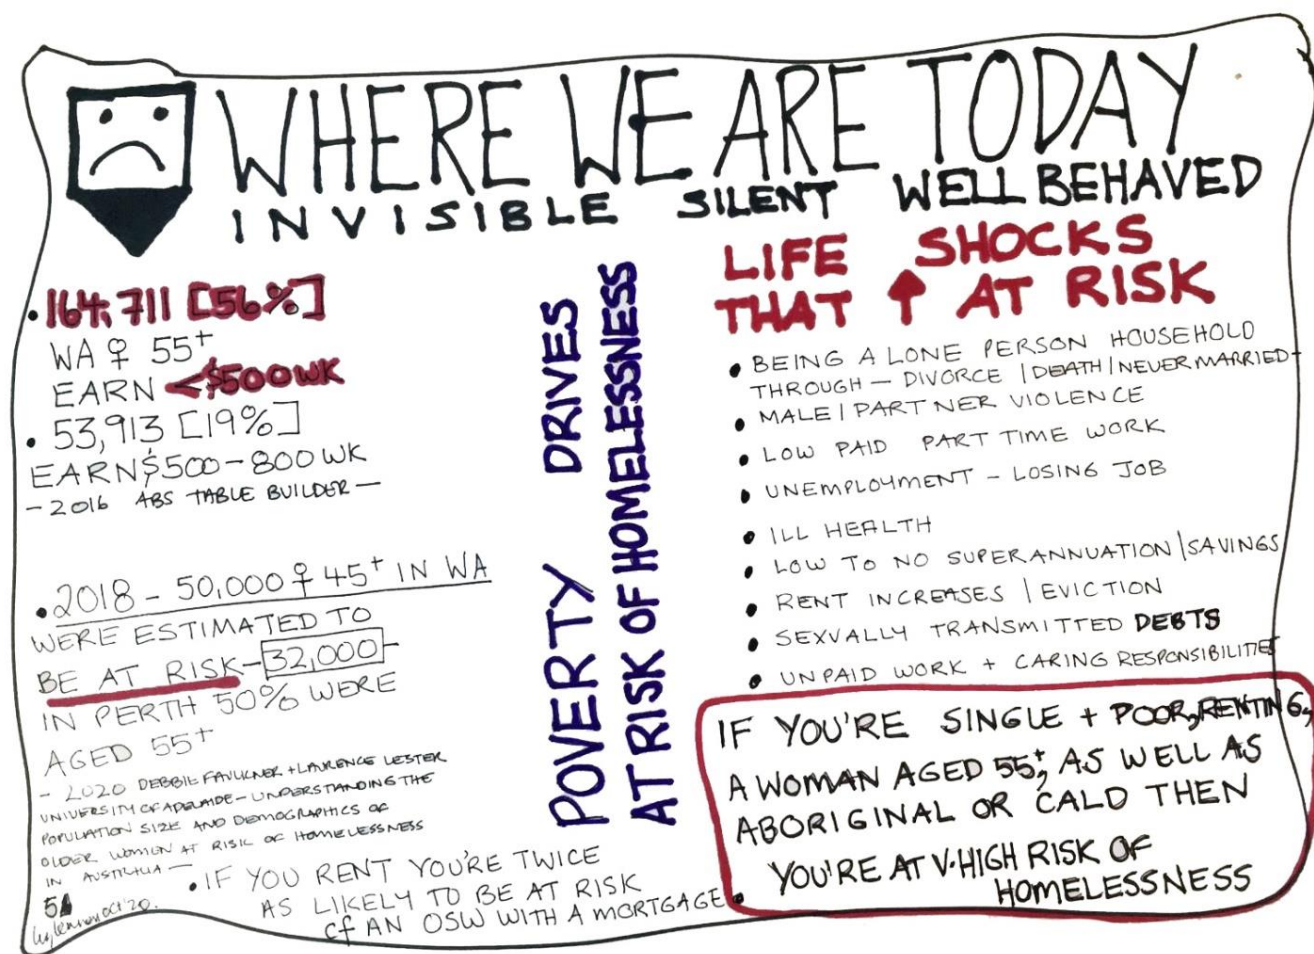 WHERE WE ARE TODAY
INVISIBLE SILENT WELL BEHAVED
• 164,711 [56%]
WA ♀ 55+
EARN <$500WK
• 53,913 [19%]
EARN $500-800WK
- 2016 ABS TABLE BUILDER -
• 2018 - 50,000 ♀ 45+ IN WA
WERE ESTIMATED TO
BE AT RISK - 32,000 -
IN PERTH 50% WERE
AGED 55+
- 2020 DEBBIE FAULKNER + LAURENCE LESTER
UNIVERSITY OF ADELAIDE - UNDERSTANDING THE
POPULATION SIZE AND DEMOGRAPHICS OF
OLDER WOMEN AT RISK OF HOMELESSNESS
IN AUSTRALIA -
• IF YOU RENT YOU'RE TWICE
AS LIKELY TO BE AT RISK
cf AN OSW WITH A MORTGAGE.
oct'20.
POVERTY DRIVES
AT RISK OF HOMELESSNESS
LIFE SHOCKS
THAT ↑ AT RISK
• BEING A LONE PERSON HOUSEHOLD
THROUGH - DIVORCE / DEATH / NEVER MARRIED
• MALE / PARTNER VIOLENCE
• LOW PAID PART TIME WORK
• UNEMPLOYMENT - LOSING JOB
• ILL HEALTH
• LOW TO NO SUPERANNUATION / SAVINGS
• RENT INCREASES / EVICTION
• SEXUALLY TRANSMITTED DEBTS
• UNPAID WORK + CARING RESPONSIBILITIES
IF YOU'RE SINGLE + POOR, RENTING,
A WOMAN AGED 55+, AS WELL AS
ABORIGINAL OR CALD THEN
YOU'RE AT V. HIGH RISK OF
HOMELESSNESS